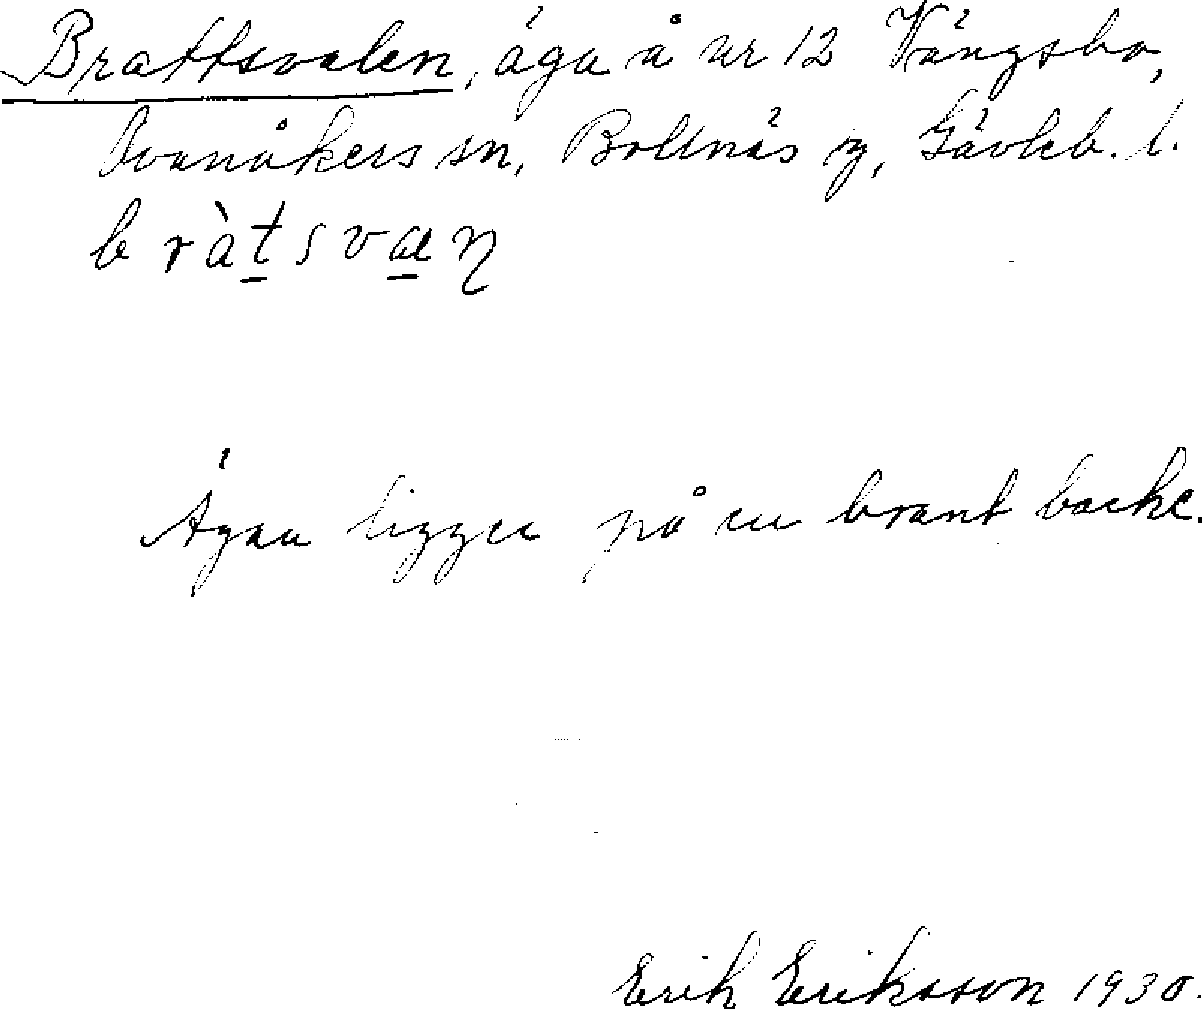 Brattsvalen, äga å nr 12 Vängsbo,
Ovanåkers sn, Bollnäs tg, Gävleb. l.
bràtsvaṉ
Ägan ligger på en brant backe.
Erik Eriksson 1930.